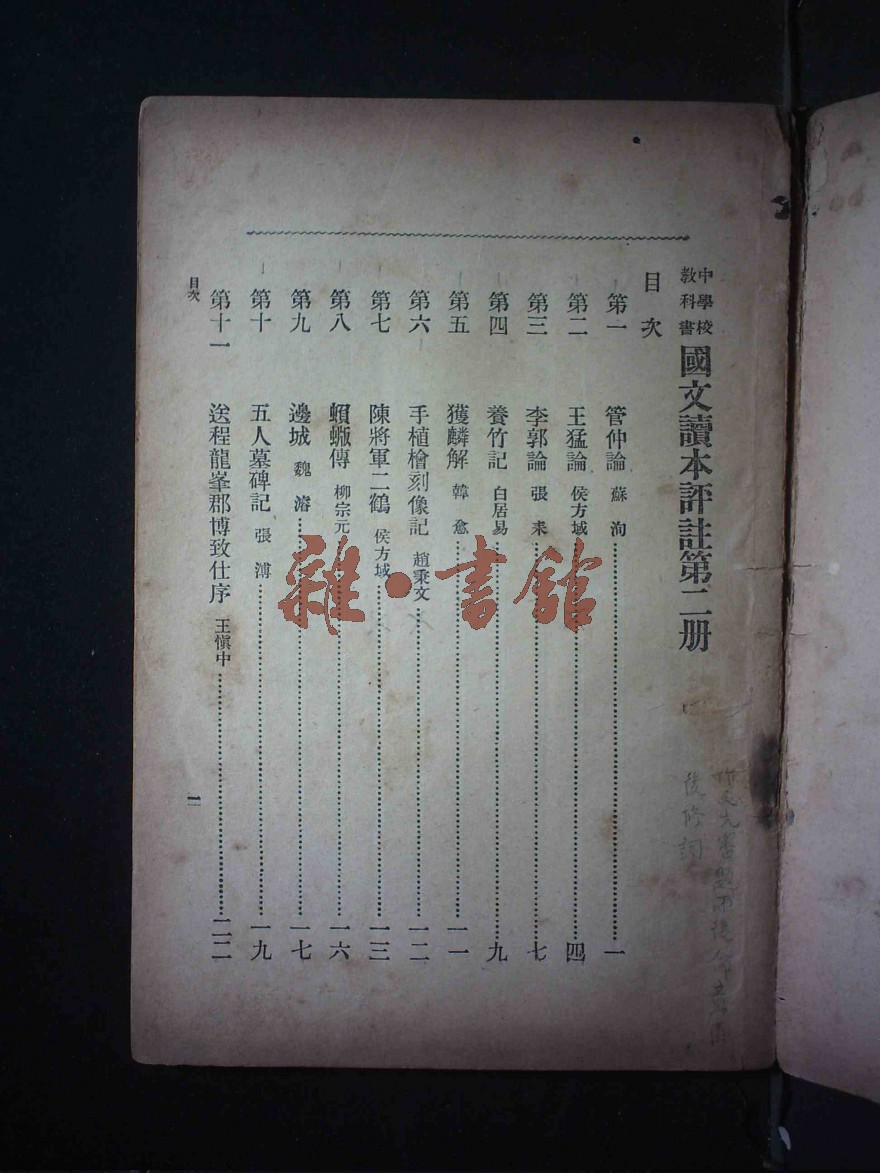 中學校教科書 國文讀本評註第二册
目次
第一 管仲論 蘇洵 一
第二 王猛論 侯方域 四
第三 李郭論 張耒 七
第四 養竹記 白居易 九
第五 獲麟解 韓愈 一一
第六 手植檜刻像記 趙秉文 一二
第七 陳將軍二鶴 侯方域 一三
第八 蝜蝂傳 柳宗元 一六
第九 邊城 魏濬 一七
第十 五人墓碑記 張溥 一九
第十一 送程龍峯郡博致仕序 王愼中 二二
目次
一
後修詞
雜·書館